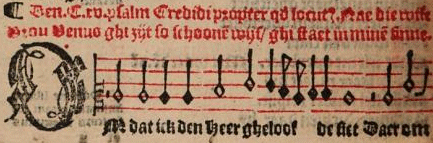 ¶ Den. C. xv. psalm Credidi propter qd locut9. Nae die wise
Vrou Venus ghi zijt so schoone wijf/ ghi staet in minē sinne.
OM dat ick den Heer gheloof de siet Daer om